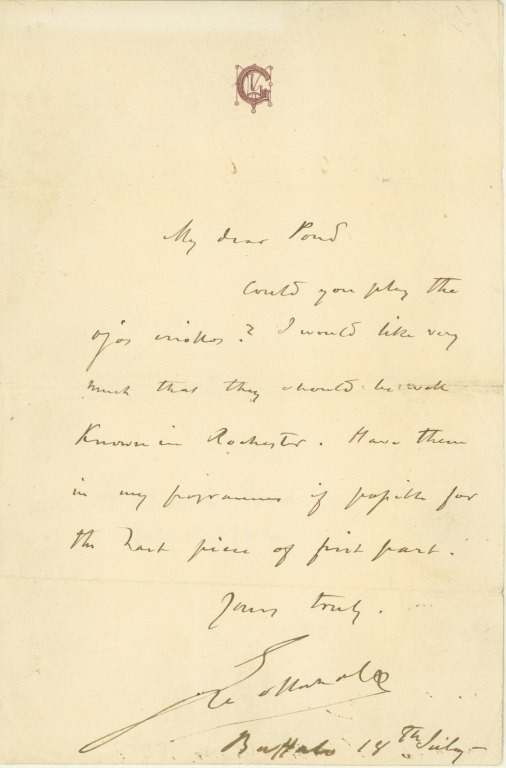 My dear Pond
Could you play the
ojos criollos? I would like very
much that they should be well
Known in Rochester. Have them
in my programmes if possible for
the last piece of first part.
Yours truly.
Gottschalk
Buffalo 18th July